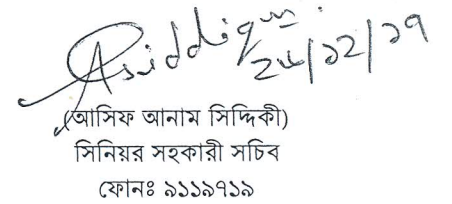 Asiddiqui
২৪/১২/১৯
(আসিফ আনাম সিদ্দিকী)
সিনিয়র সহকারী সচিব
ফোনঃ ৯১১৯৭১৯